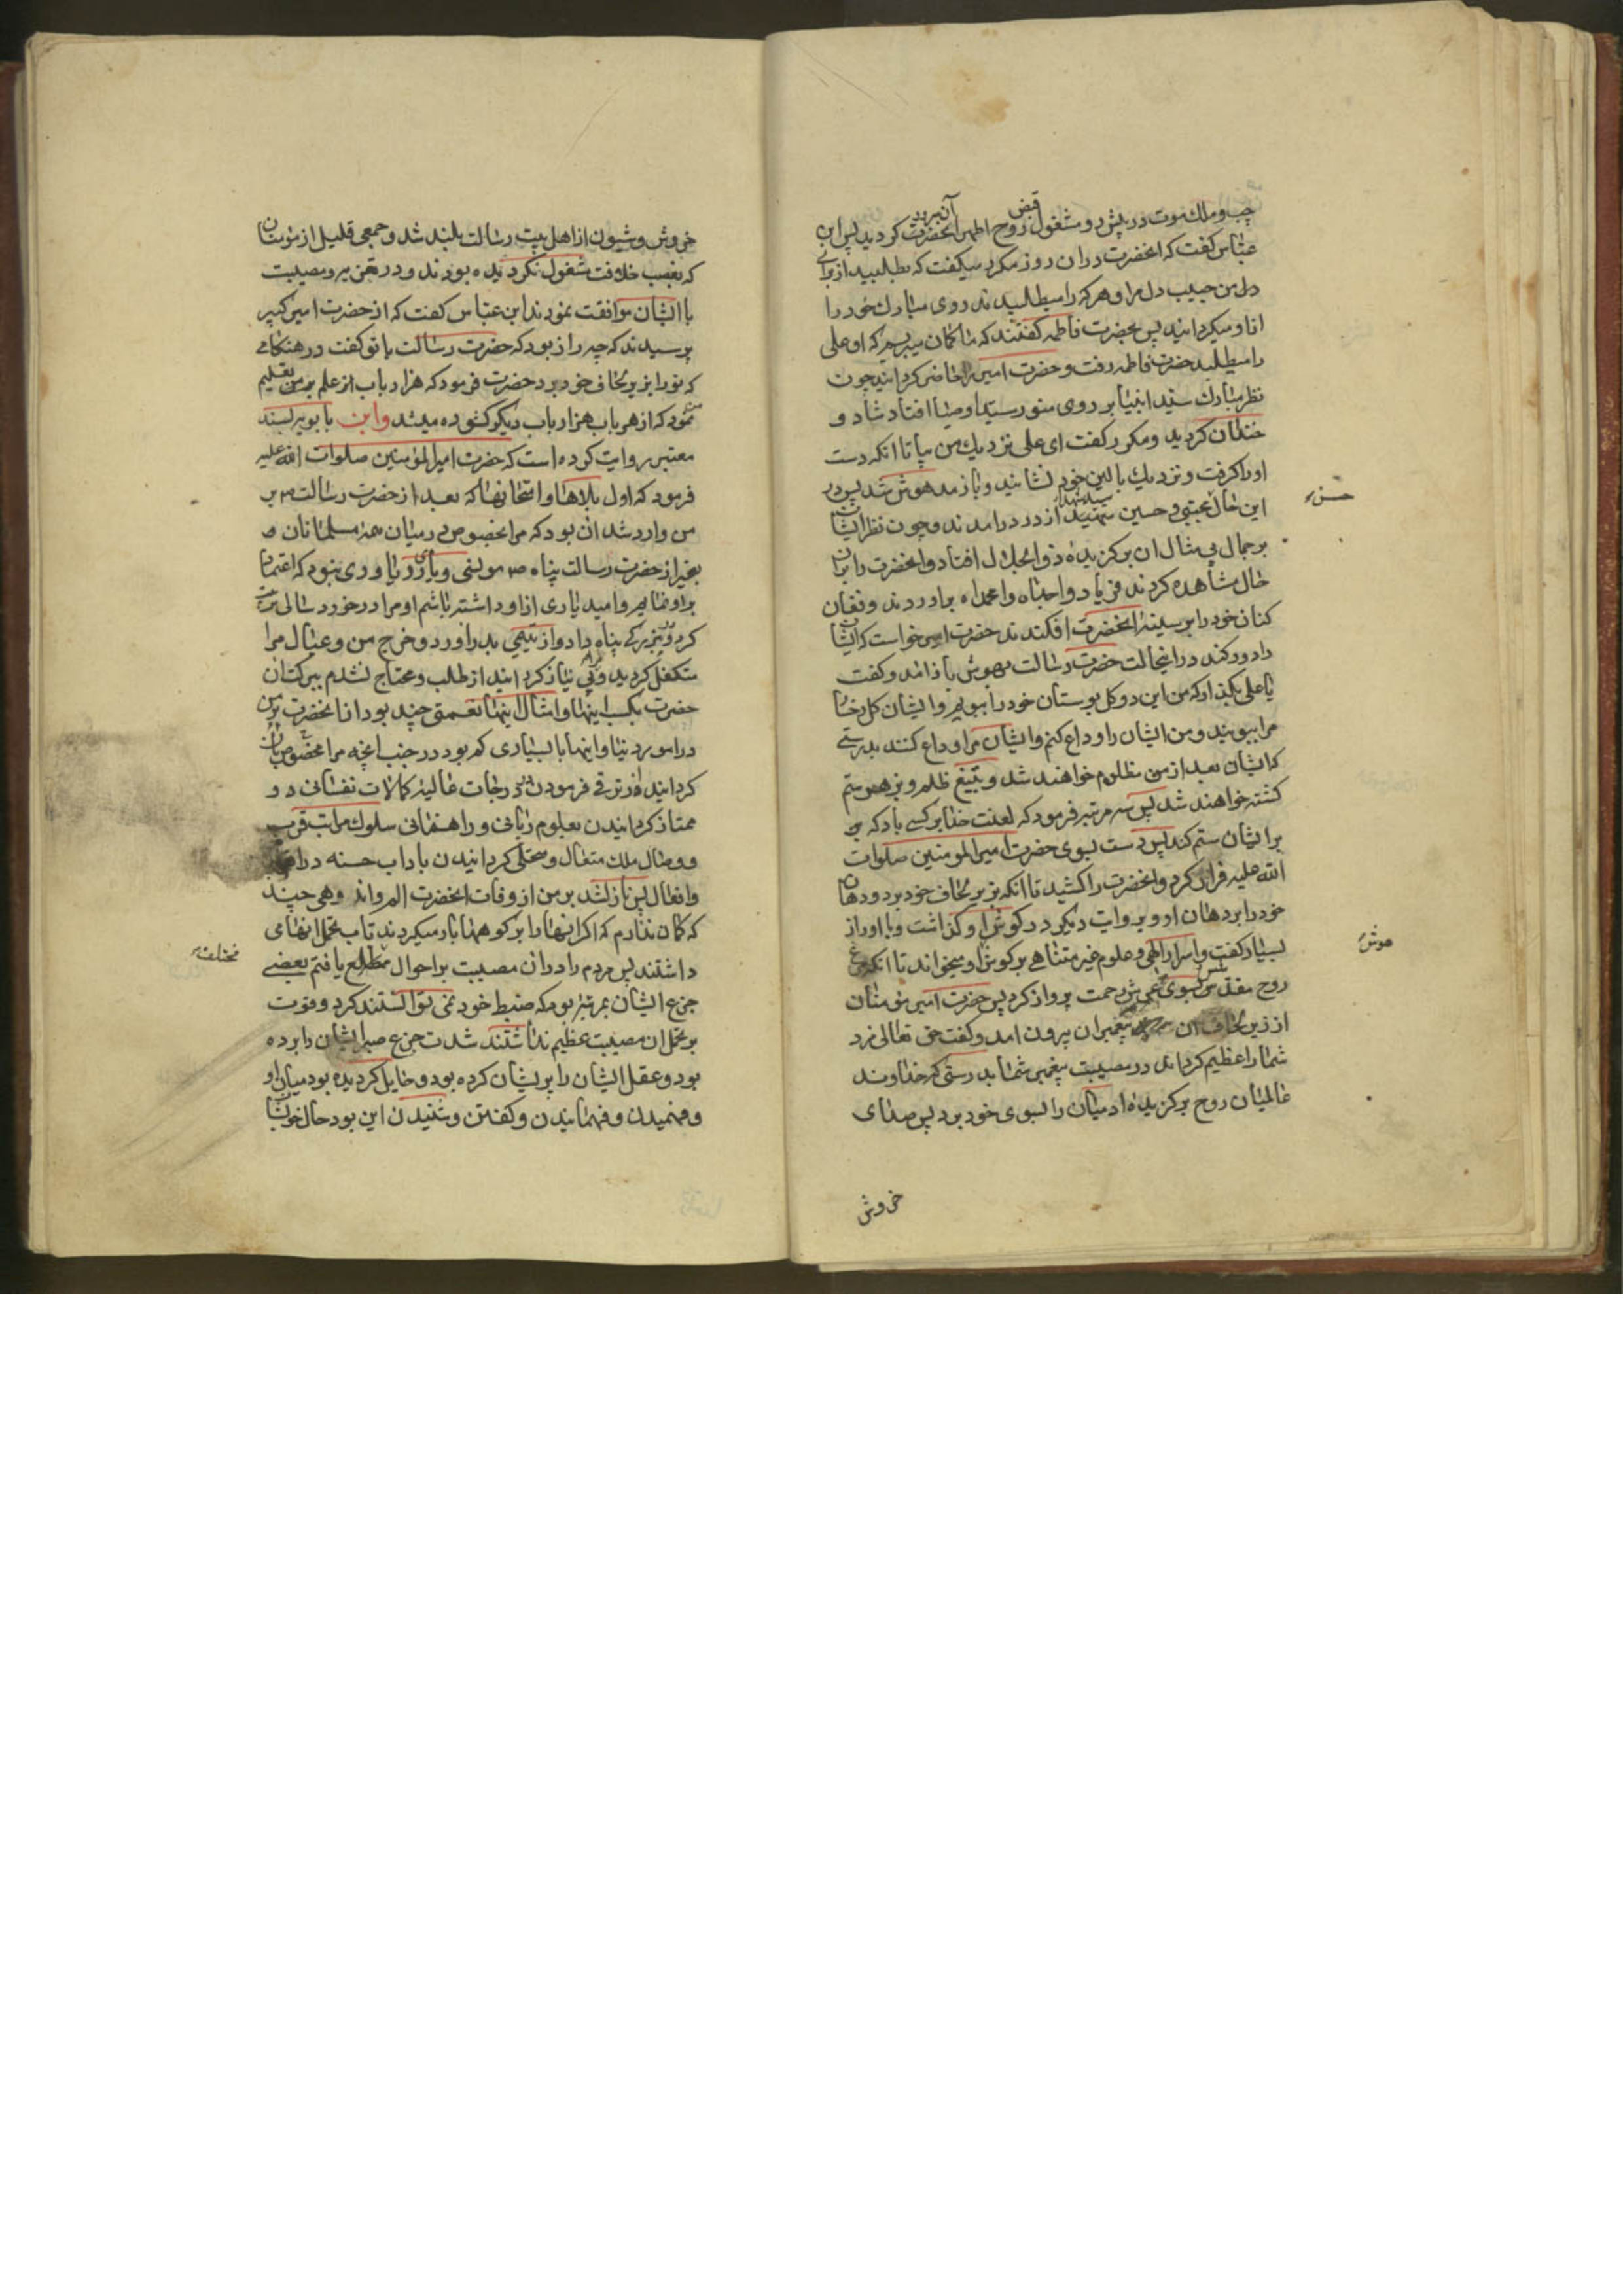 چپ و ملک موت در پیش رو و مشغول قبض روح اطهر آنحضرت کردید پس ابن
عباس کفت که انحضرت دران روز مکرر میکفت که بطلبید از برای
دل من حبیب دل مرا و هر که را میطلبیدند روی مبارک خود را
ازاو میکردانید پس بحضرت فاطمه کفتند که ما کمان میبریم که او علی
را میطلبد حضرت فاطمه رفت و حضرت امیر را حاضر کردانید چون
نظر مبارک سید انبیا بر روی منور سید اوصیا افتاد شاد و
خندان کردید و مکرر کفت ای علی نزدیک من بیا تا انکه دست
اورا کرفت و نزدیک بالین خود نشانید و باز مدهوش شد پس در
این حال مجتبی و حسین سید شهدا از در درامدند و چون نظر ایشان
حسن
بر جمال بی مثال ان برکزیدهٔ ذو الجلال افتاد و انحضرت را بران
حال مشاهده کردند فریاد واجداه وا محمداه براوردند و فغان
کنان خود را بر سینهٔ انحضرت افکندند حضرت امیر خواست که ایشان
را دور کند در اینحالت حضرت رسالت بهوش باز امد و کفت
یا علی بکذار که من این دو کل بوستان خود را ببویم و ایشان کل رخسار
مرا ببویند و من ایشان را وداع کنم و ایشان مرا وداع کنند بدرستی
که ایشان بعد از من مظلوم خواهند شد و بتیغ ظلم و بزهر ستم
کشته خواهند شد پس سه مرتبه فرمود که لعنت خدا بر کسی باد که
بر ایشان ستم کند پس دست بسوی حضرت امیر المومنین صلوات
الله علیه فراز کرد و انحضرت را کشید تا انکه بزیر لحاف خود برد و دهان
خود را بر دهان او و بروایت دیکر در کوش او کذاشت و با او راز
بسیار کفت و اسرار الهی و علوم غیر متناهی بر کوش او میخواند تا انکه مرغ
هوش
روح مقدسش بسوی عرش رحمت پرواز کرد پس حضرت امیر مؤمنان
از زیر لحاف ان پیغمبران بیرون امد و کفت حق تعالی مزد
شما را عظیم کرداند در مصیبت پیغمبر شما بدرستی که خداوند
عالمیان روح برکزیدهٔ ادمیان را بسوی خود برد پس صدای
خروش
خروش و شیون از اهل بیت رسالت بلند شد و جمعی قلیل از مؤمنان
که بغصب خلافت مشغول نکردیده بودند و در تعزیه و مصیبت
با ایشان موافقت نمودند ابن عباس کفت که از حضرت امیر کبیر
پرسیدند که چه راز بود که حضرت رسالت با تو کفت در هنکامی
که تو را بزیر لحاف خود برد حضرت فرمود که هزار باب از علم بر من تعلیم
نمود که از هر باب هزار باب دیکر کشوده میشد و ابن بابویه بسند
معتبر روایت کرده است که حضرت امیر المؤمنین صلوات الله علیه
فرمود که اول بلاها و امتحانها که بعد از حضرت رسالت ص بر
من وارد شد ان بود که مرا بخصوص در میان همهٔ مسلمانان
بغیر از حضرت رسالت پناه ص مونسی و یاری و یاوری نبود که اعتماد
براو نمایم و امید یاری ازاو داشته باشم او مرا در خورد سالی تربیت
کرد و در بزرکی پناه داد و از یتیمی بدر اورد و خرج من و عیال مرا
متکفل کردید و بی نیاز کردانید از طلب و محتاج نشدم ببرکت ان
حضرت بکسب اینها و امثال اینها نعمتی چند بود از انحضرت بر من
در امور دنیا و اینها با بسیاری کم بود در جنب انچه مرا مخصوص بان
کردانیده از ترقی فرمودن بر درجات عالیهٔ کمالات نفسانی و
ممتاز کردانیدن بعلوم ربانی و راهنمائی سلوک مراتب قرب
و وصال ملک متعال و متحلی کردانیدن باداب حسنه در اقوال
و افعال پس نازل شد بر من از وفات انحضرت الم و اندوهی چند
که کمان ندارم که اکر انها را بر کوهها بار میکردند تاب تحمل انها می
داشتند پس مردم را دران مصیبت بر احوال مطلع یافتم بعضی
مختلف
جزع ایشان بمرتبهٔ بود که ضبط خود نمی توانستند کرد و قوت
بر تحمل ان مصیبت عظیم نداشتند شدت جزع صبر ایشان را برده
بود و عقل ایشان را پریشان کرده بود و حایل کردیده بود میان او
و فهمیدن و فهمانیدن و کفتن و شنیدن این بود حال خویشان